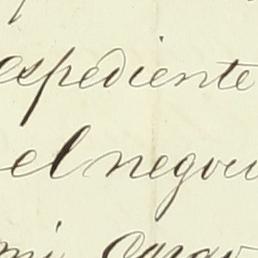 espediente
el negoci
mi cargo